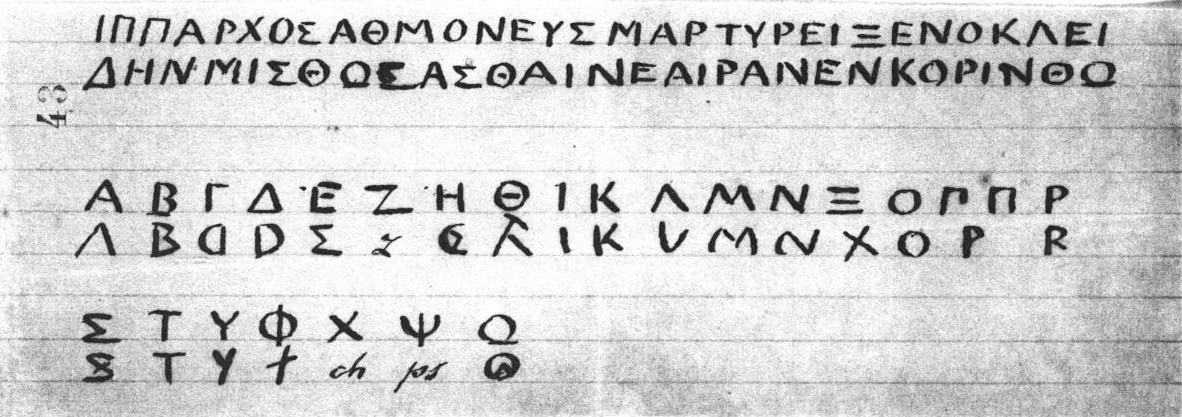 ΙΠΠΑΡΧΟΣΑΘΜΟΝΕΥΣ ΜΑΡΤΥΡΕΙΞΕΝΟΚΛΕΙ
ΔΗΝΜΙΣΘΩΣΑΣΘΑΙΝΕΑΙΡΑΝΕΝΚΟΡΙΝΘΩ
43
Α Β Γ Δ Έ Ζ Ή Θ Ι Κ Λ Μ Ν Ξ Ο Π Π Ρ
Λ B D Σ z I K V M N X O P R
Σ Τ Υ Φ Χ Ψ Ω
S T Y † ch ps